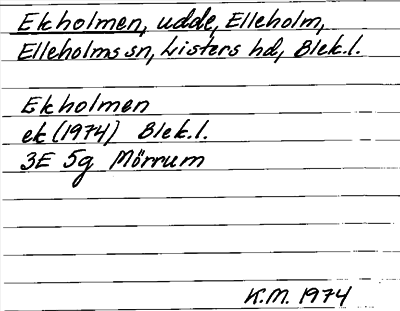 Ekholmen, udde, Elleholm,
Elleholms sn, Listers hd, Blek.l.
Ekholmen
ek (1974) Blek.l.
3E 5g Mörrum
K.M. 1974